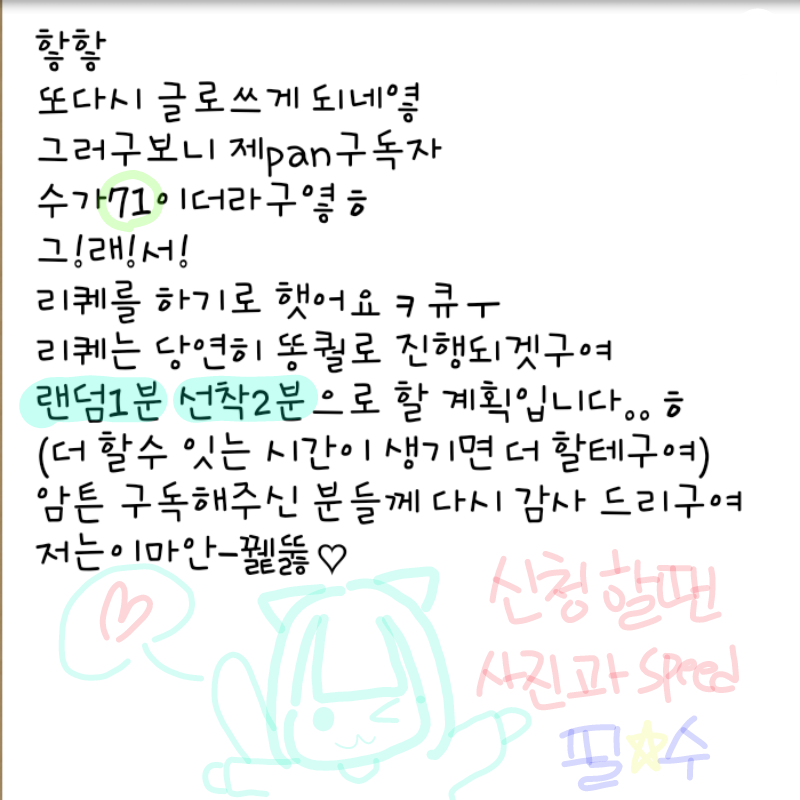 핳핳
또다시 글로쓰게 되네옇
그러구보니 제pan구독자
수가71이더라구옇ㅎ
그!래!서!
리퀘를 하기로 햇어요ㅋ큐ㅜ
리퀘는 당연히 똥퀄로 진행되겟구여
랜덤1분 선착2분으로 할 계획입니다..ㅎ
(더 할수 잇는 시간이 생기면 더 할테구여)
암튼 구독해주신 분들께 다시 감사 드리구여
저는이마안-뀉뚫♡
신청할땐
사진과 speed
필☆수